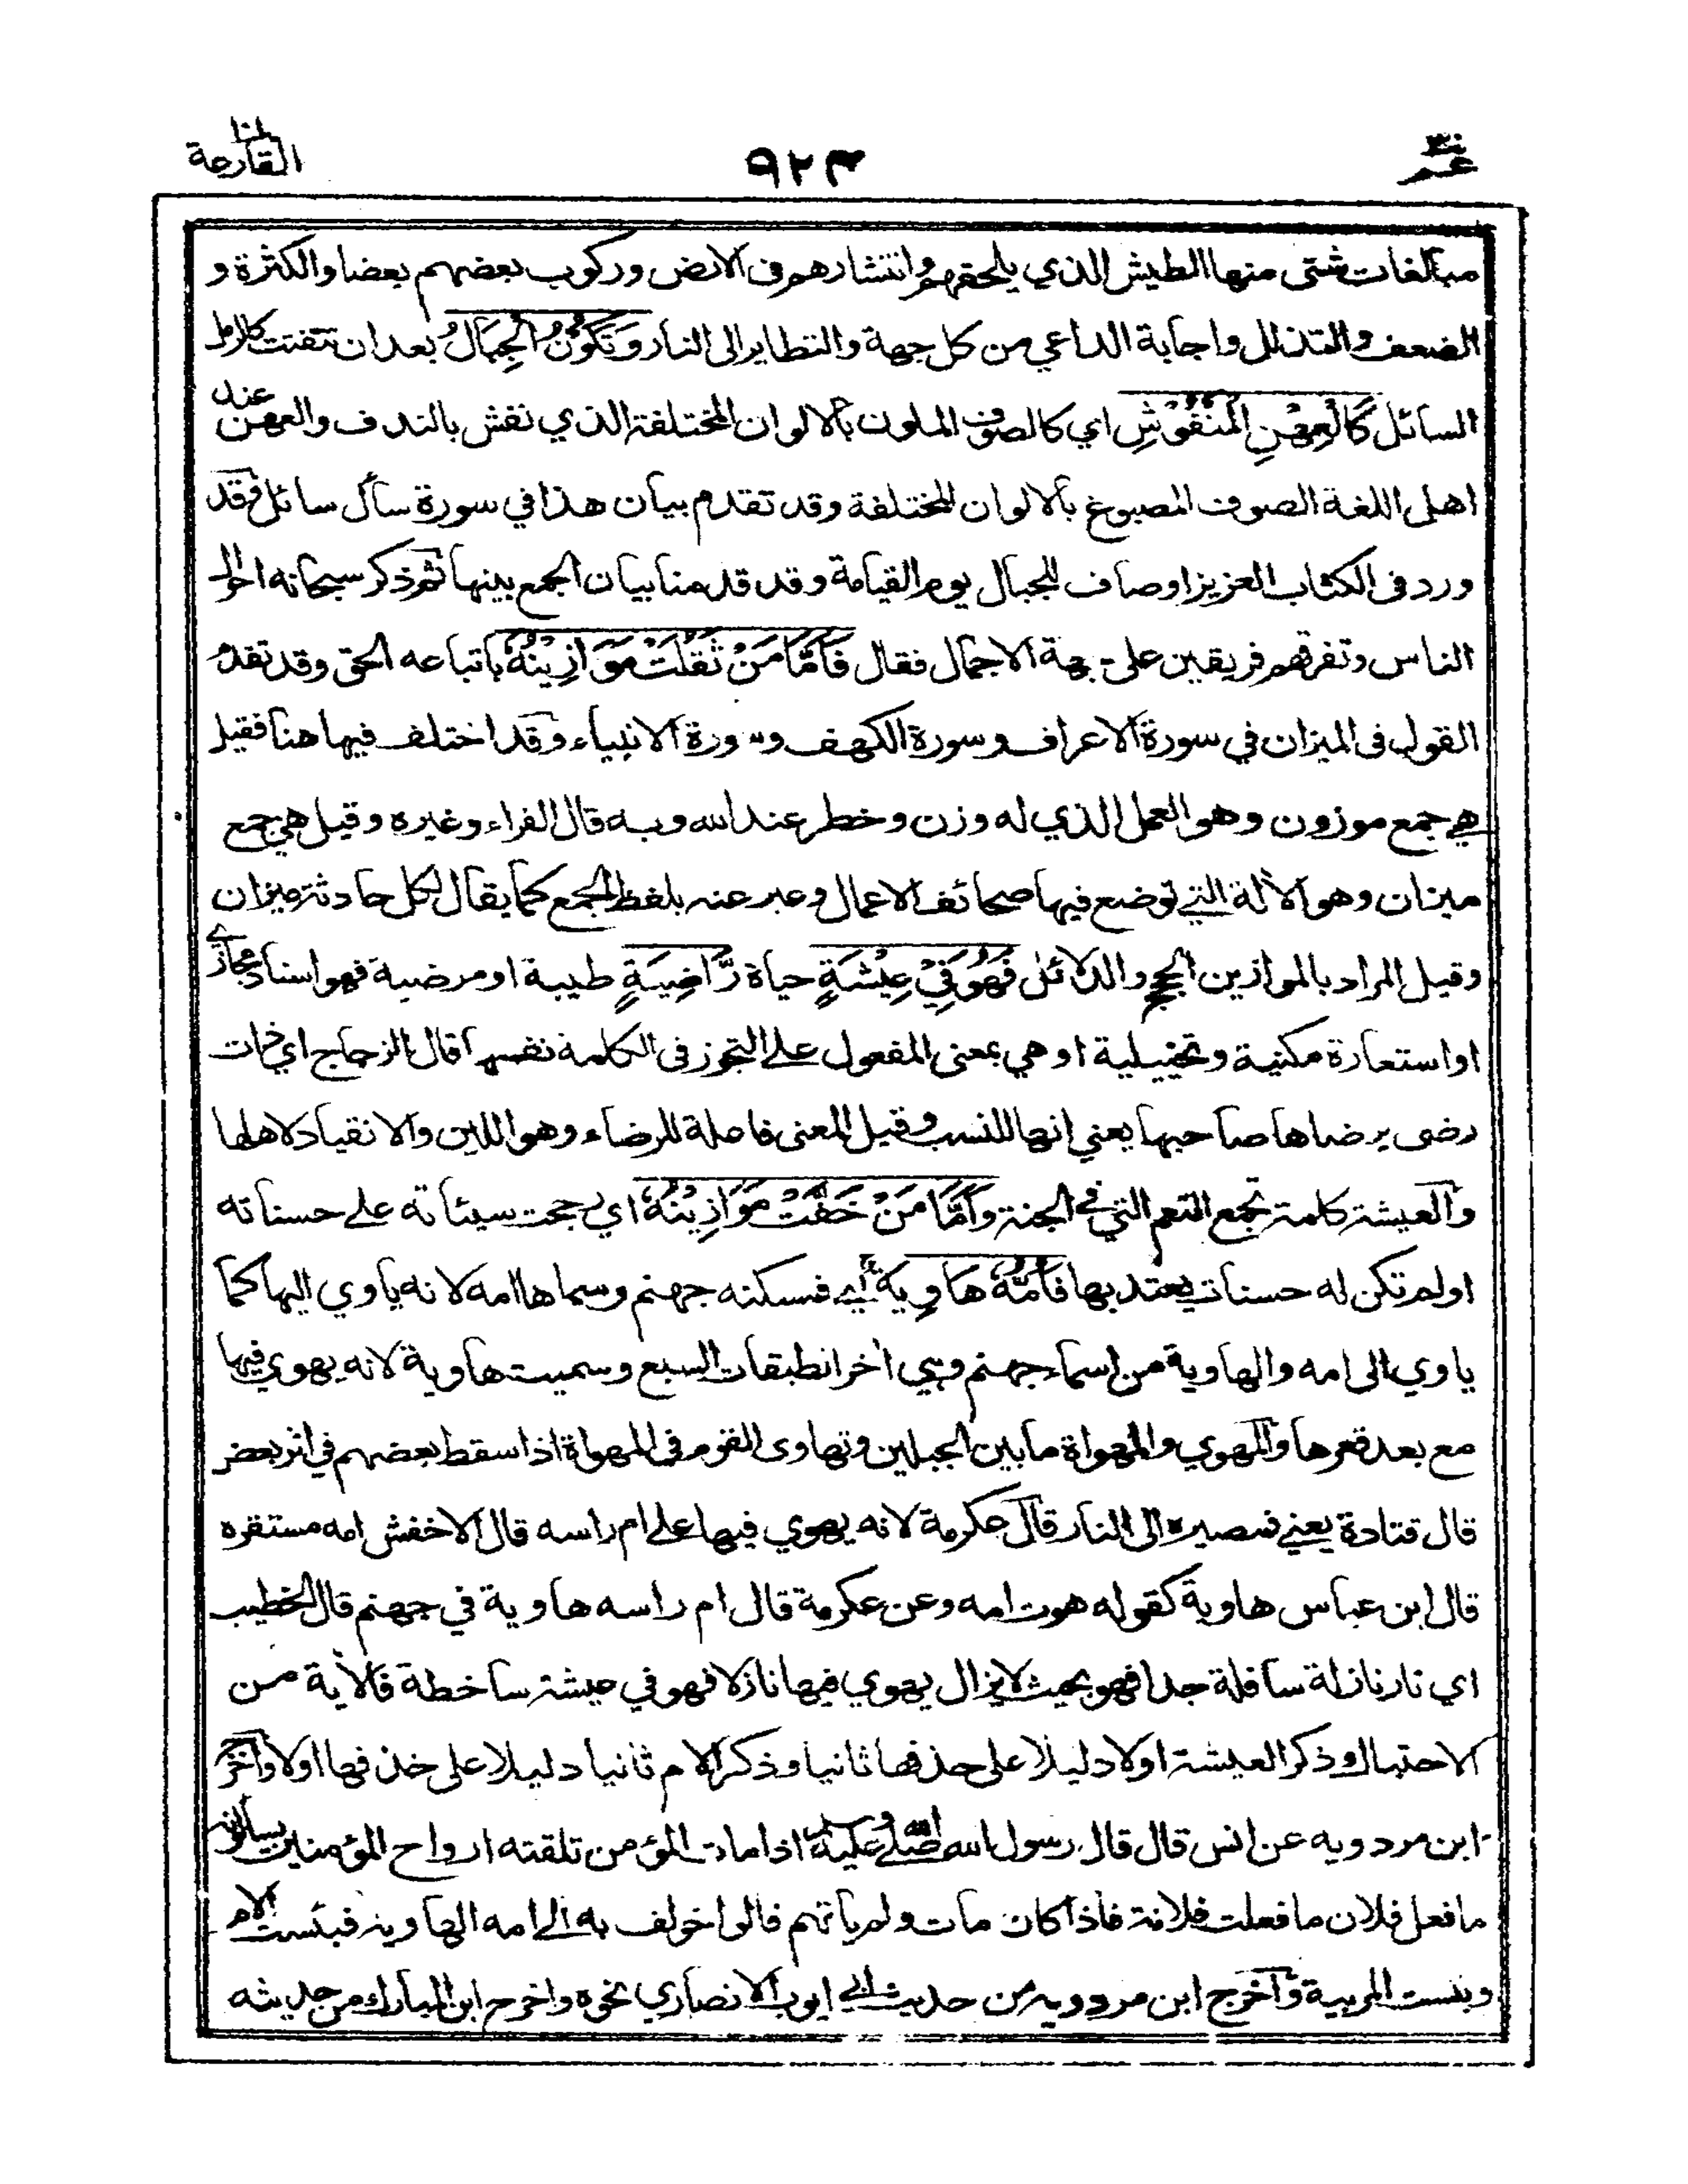 عم ٣٠
٩٢٣
القارعة
مبالغات شتى منها الطيش الذي يلحقهم وانتشارهم في الارض وركوب بعضهم بعضا والكثرة و
الضعف والتذلل واجابة الداعي من كل جهة والتطاير الى النار وَتَكُوْنُ الْجِبَالُ بعد ان تتفتت كالرمل
السائل كَالْعِهْنِ الْمَنْفُوْشِ اي كالصوف الملون بالالوان المختلفة الذي نفش بالندف والعهن عند
اهل اللغة الصوف المصبوغ بالالوان المختلفة وقد تقدم بيان هذا في سورة سأل سائل وقد
ورد في الكتاب العزيز اوصاف للجبال يوم القيامة وقد قدمنا بيان الجمع بينها ثم ذكر سبحانه احوال
الناس وتفرقهم فريقين على جهة الاجمال فقال فَاَمَّا مَنْ ثَقُلَتْ مَوَازِيْنُهُ باتباعه الحق وقد تقدم
القول في الميزان في سورة الاعراف وسورة الكهف وسورة الانبياء وقد اختلف فيها هنا فقيل
هي جمع موزون وهو العمل الذي له وزن وخطر عند الله وبه قال الفراء وغيره وقيل هي جمع
ميزان وهو الألة التي توضع فيها صحائف الاعمال وعبر عنه بلفظ الجمع كما يقال لكل حادثة ميزان
وقيل المراد بالموازين الحجج والدلائل فَهُوَ فِيْ عِيْشَةٍ حياة رَّاضِيَةٍ طيبة او مرضية فهو اسناد مجازي
او استعارة مكنية وتخييلية او هي بمعنى المفعول على التجوز في الكلمة نفسها قال الزجاج اي ذات
رضى يرضاها صاحبها يعني انها للنسب وقيل المعنى فاعلة للرضاء وهو اللين والانقياد لاهلها
والعيشة كلمة تجمع النعم التي في الجنة وَاَمَّا مَنْ خَفَّتْ مَوَازِيْنُهُ اي رجحت سيئاته على حسناته
او لم تكن له حسنات يعتد بها فَاُمُّهُ هَاوِيَةٌ اي فمسكنه جهنم وسماها امه لانه ياوي اليها كما
ياوي الى امه والهاوية من اسماء جهنم وهي اخر الطبقات السبع وسميت هاوية لانه يهوي فيها
مع بعد قعرها والمهوي والمهواة ما بين الجبلين وتهاوى القوم في المهواة اذا سقط بعضهم في اثر بعض
قال قتادة يعني فمصيره الى النار قال عكرمة لانه يهوي فيها على ام راسه قال الاخفش امه مستقره
قال ابن عباس هاوية كقوله هوت امه وعن عكرمة قال ام راسه هاوية في جهنم قال الخطيب
اي نار نازلة سافلة جدا فهو بحيث لا يزال يهوي فيها نازلا فهو في عيشة ساخطة فالأية من
الاحتباك وذكر العيشة اولا دليلا على حذفها ثانيا وذكر الام ثانيا دليلا على حذفها اولا واخرج
ابن مردويه عن انس قال قال رسول الله صلى الله عليه وسلم اذا مات المؤمن تلقته ارواح المؤمنين يسألونه
ما فعل فلان ما فعلت فلانة فاذا كان مات ولم ياتهم قالوا خولف به الى امه الهاوية فبئست الام
وبئست المربية واخرج ابن مردويه من حديث ابي ايوب الانصاري نحوه واخرج ابن المبارك من حديثه